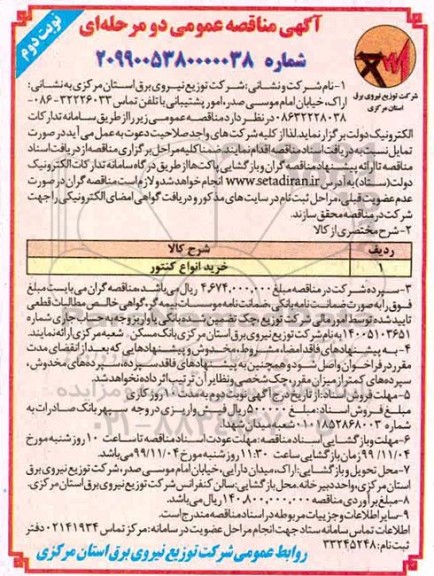 نوبت دوم
آگهی مناقصه عمومی دو مرحله‌ای
شماره ۲۰۹۹۰۰۵۳۸۰۰۰۰۰۳۸
شرکت توزیع نیروی برق
استان مرکزی
۱-نام شرکت و نشانی: شرکت توزیع نیروی برق استان مرکزی به نشانی:
اراک، خیابان امام موسی صدر، امور پشتیبانی با تلفن تماس ۳۲۲۲۶۰۳۳-۰۸۶
۰۸۶۳۲۲۲۸۰۳۸ در نظر دارد مناقصه عمومی زیر را از طریق سامانه تدارکات
الکترونیک دولت برگزار نماید لذا از کلیه شرکت های واجد صلاحیت دعوت به عمل می آید در صورت
تمایل نسبت به دریافت اسناد مناقصه اقدام نمایند. ضمنا کلیه مراحل برگزاری مناقصه از دریافت اسناد
مناقصه تا ارائه پیشنهاد مناقصه گران و بازگشایی پاکت‌ها از طریق درگاه سامانه تدارکات الکترونیک
دولت (ستاد) به آدرس www.setadiran.ir انجام خواهد شد و لازم است مناقصه گران در صورت
عدم عضویت قبلی، مراحل ثبت نام در سایت های مذکور و دریافت گواهی امضای الکترونیکی را جهت
شرکت در مناقصه محقق سازند.
۲-شرح مختصری از کالا
ردیف شرح کالا
۱ خرید انواع کنتور
۳-سپرده شرکت در مناقصه مبلغ ۴.۶۷۴.۰۰۰.۰۰۰ ریال می‌باشد، مناقصه گران می بایست مبلغ
فوق را به صورت ضمانت نامه بانکی، ضمانت نامه موسسات بیمه گر، گواهی خالص مطالبات قطعی
تایید شده توسط امور مالی شرکت توزیع، چک تضمین شده بانکی یا واریز وجه به حساب جاری شماره
۱۴۰۰۵۱۰۳۶۵۱ به نام شرکت توزیع نیروی برق استان مرکزی بانک مسکن، شعبه مرکزی ارائه نمایند.
۴-به پیشنهادهای فاقد امضا، مشروط، مخدوش و پیشنهادهایی که بعد از انقضای مدت
مقرر در فراخوان واصل شود و همچنین به پیشنهادهای فاقد سپرده، سپرده‌های مخدوش،
سپرده های کمتر از میزان مقرر، چک شخصی و نظایر آن ترتیب اثر داده نخواهد شد.
۵-مهلت فروش اسناد: از تاریخ درج آگهی نوبت دوم به مدت ۳ روز کاری
مبلغ فروش اسناد: مبلغ ۵۰۰.۰۰۰ ریال فیش واریزی در وجه سپهر بانک صادرات به
شماره ۰۱۰۸۵۲۸۶۸۰۰۳ شعبه میدان شهدا
۶-مهلت و بازگشایی اسناد مناقصه: مهلت عودت اسناد مناقصه تا ساعت ۱۰ روز شنبه مورخ
۹۹/۱۱/۰۴ زمان بازگشایی ساعت ۱۱:۳۰ روز شنبه مورخ ۹۹/۱۱/۰۴ می‌باشد.
۷-محل تحویل و بازگشایی: اراک، میدان دارایی، خیابان امام موسی صدر، شرکت توزیع نیروی برق
استان مرکزی، واحد دبیرخانه. محل بازگشایی: سالن کنفرانس شرکت توزیع نیروی برق استان مرکزی.
۸-مبلغ برآوردی مناقصه ۱۴۰.۸۰۰.۰۰۰.۰۰۰ ریال می‌باشد.
۹-سایر اطلاعات و جزییات مربوطه در اسناد مناقصه مندرج است.
اطلاعات تماس سامانه ستاد جهت انجام مراحل عضویت در سامانه: مرکز تماس ۰۲۱۴۱۹۳۴ دفتر
ثبت نام: ۳۳۲۴۵۲۴۸
روابط عمومی شرکت توزیع نیروی برق استان مرکزی